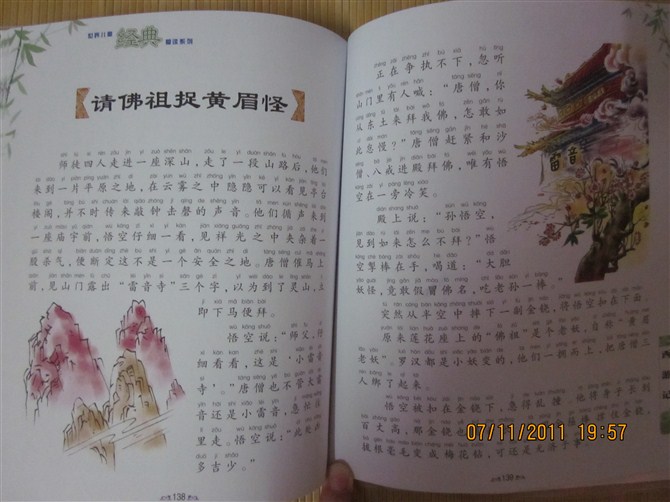 世界儿童
经典
阅读系列
请佛祖捉黄眉怪
师徒四人走进一座深山,走了一段山路后,他们
来到一片平原之地,在云雾之中隐隐可以看见亭台
楼阁,并不时传来敲钟击磬的声音。他们循声来到
一座庙宇前,悟空仔细一看,见祥光之中夹杂着一
股杀气,便断定这不是一个安全之地。唐僧催马上
前,见山门露出“雷音寺”三个字,以为到了灵山,立
即下马便拜。
悟空说:“师父,仔
细看看,这是‘小雷音
寺’。”唐僧也不管大雷
音还是小雷音,急忙往
里走。悟空说:“此处凶
多吉少。”
138
正在争执不下,忽听
山门里有人喊:“唐僧,你
从东土来拜我佛,怎敢如
此怠慢?”唐僧赶紧和沙
僧、八戒进殿拜佛,唯有悟
空在一旁冷笑。
殿上说:“孙悟空,
见到如来怎么不拜?”悟
空掣棒在手,喝道:“大胆
妖怪,竟敢假冒佛名,吃老孙一棒。”
突然从半空中掉下一副金铙,将悟空扣在下面。
原来莲花座上的“佛祖”是个老妖,自称“黄眉
老妖”。罗汉都是小妖变的,他们一拥而上,把唐僧三
人绑了起来。
悟空被扣在金铙下,急得乱撞。他将身子长到
百丈高,那金铙也
拔根毫毛变成梅花钻,可还是无济于事。
139
雷音
游
记
07/11/2011 19:57